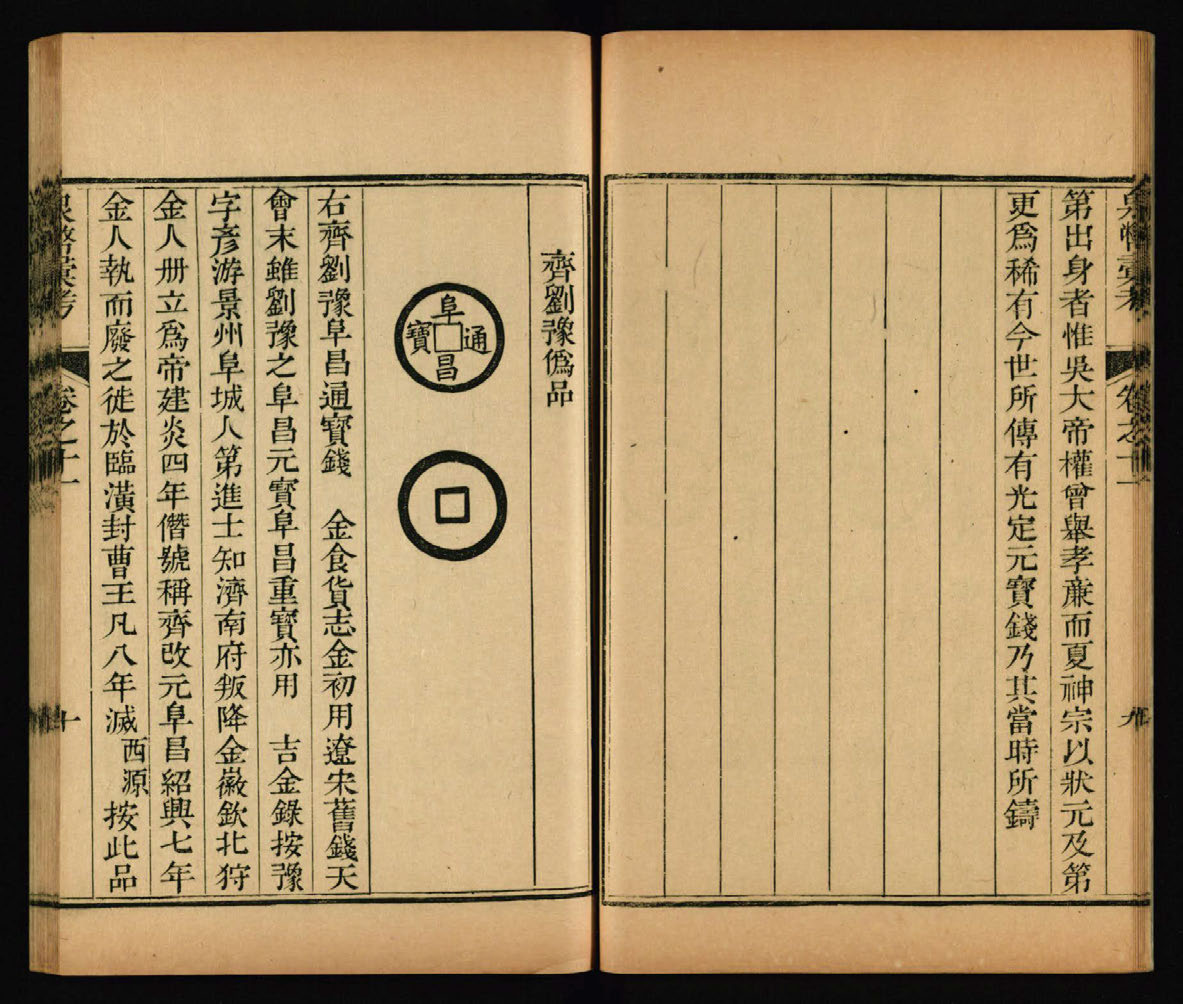 泉幣彙考
卷之十一
九
第出身者惟吳大帝權曾舉孝廉而夏神宗以狀元及第
更爲稀有今世所傳有光定元寶錢乃其當時所鑄
齊劉豫僞品
阜昌通寶
右齊劉豫阜昌通寶錢 金食貨志金初用遼宋舊錢天
會末雖劉豫之阜昌元寶阜昌重寶亦用 吉金錄按豫
字彥游景州阜城人第進士知濟南府叛降金徽欽北狩
金人册立爲帝建炎四年僭號稱齊改元阜昌紹興七年
金人執而廢之徙於臨潢封曹王凡八年滅 西源 按此品
泉幣彙考
卷之十一
十